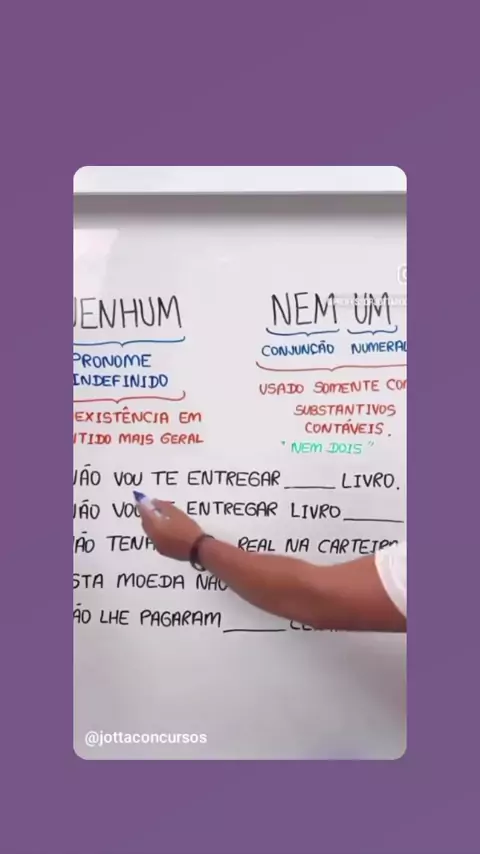 NENHUM
PRONOME
INDEFINIDO
EXISTÊNCIA EM
TIDO MAIS GERAL
NEM UM
CONJUNÇÃO NUMERAL
USADO SOMENTE COM
SUBSTANTIVOS
CONTÁVEIS.
"NEM DOIS"
NÃO VOU TE ENTREGAR _____ LIVRO.
NÃO VOU TE ENTREGAR LIVRO _____
ÃO TENH REAL NA CARTEIRA
STA MOEDA NÃO
ÃO LHE PAGARAM _____
@jottaconcursos